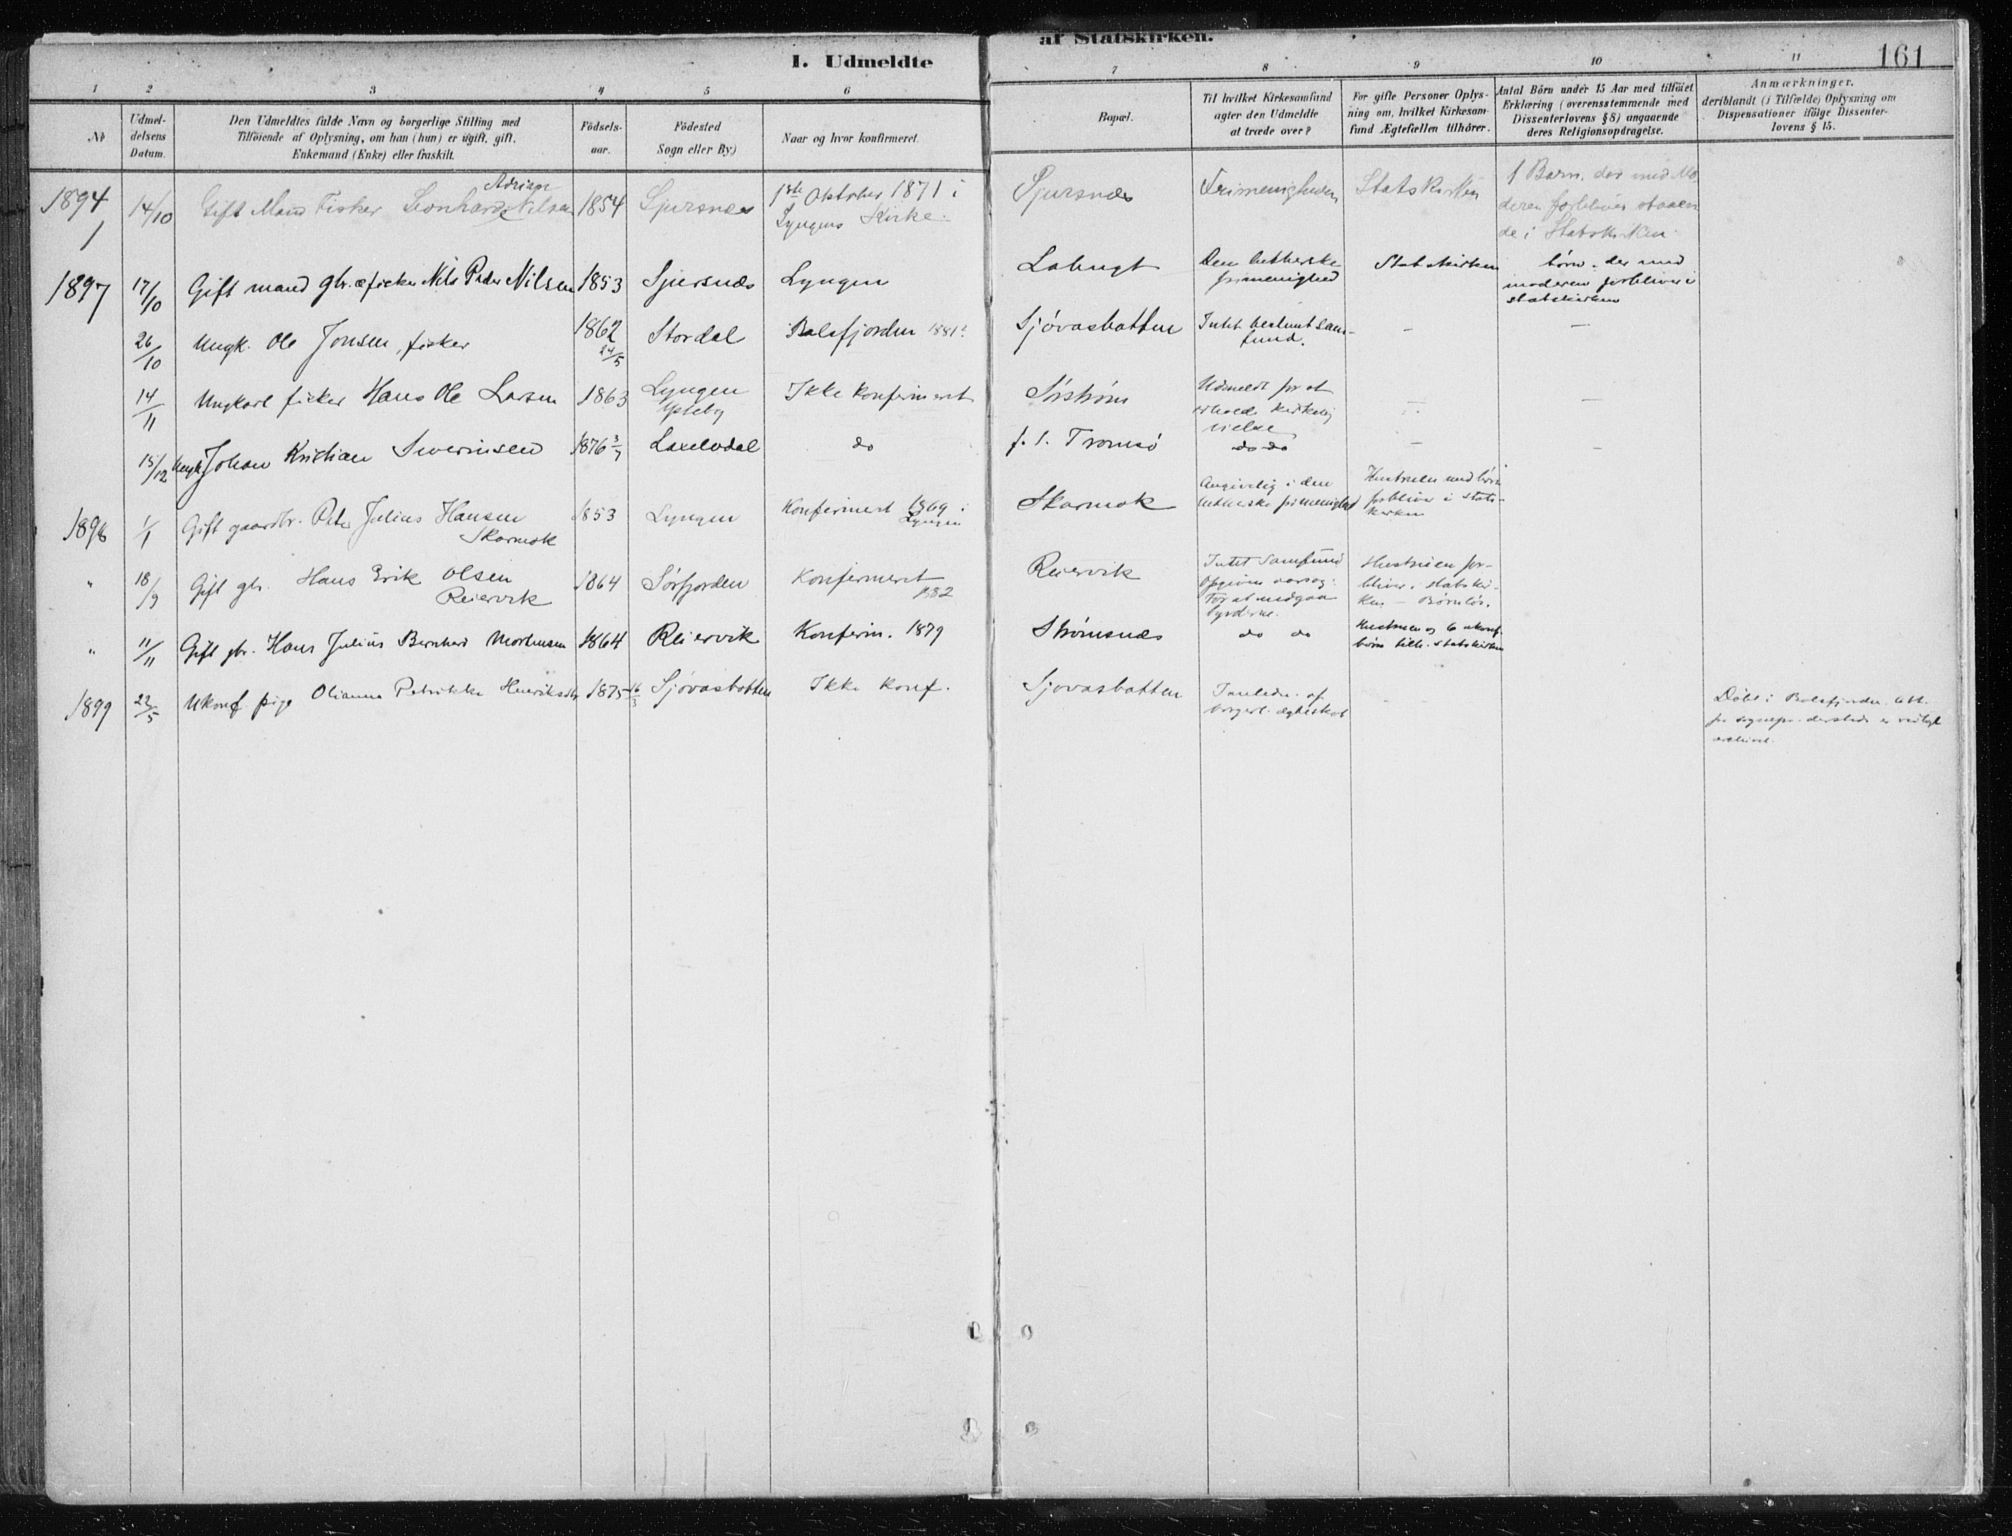 1. Udmeldte
af Statskirken.
161
1 2 3 4 5 6
7 8 9 10 11
№
Udmel-
delsens
Datum.
Den Udmeldtes fulde Navn og borgerlige Stilling med
Tilföiende af Oplysning, om han (hun) er ugift, gift,
Enkemand (Enke) eller fraskilt.
Födsels-
aar.
Födested
Sogn eller By.)
Naar og hvor konfirmeret.
Bopæl.
Til hvilket Kirkesamfund
agter den Udmeldte
at træde over?
For gifte Personer Oplys-
ning om, hvilket Kirkesam-
fund Ægtefællen tilhörer.
Antal Börn under 15 Aar med tilföiet
Erklæring (overensstemmende med
Dissenterlovens § 8) angaaende
deres Religionsopdragelse.
Anmærkninger.
deriblandt (i Tilfælde) Oplysning om
Dispensationer ifölge Dissenter-
lovens § 15.
1894
1
14/10
Adrian
Gift Mand Fisker Leonhard Nilsen
1854
Sjursnæs
1ste Oktober 1871 i
Lyngens Kirke.
Sjursnæs
Frimenigheden
Statskirken
1 Barn, der med Mo
deren forbliver staaen
de i Statskirken
1897
17/10
Gift mand gbr. & fisker Nils Peder Nilsen
1853
Sjursnæs
Lyngen
Lakugt
Den lutherske
frimenighed
Statskirken
börn, der med
moderen forbliver i
statskirken
26/10
Ungk. Ole Jonsen, fisker
1862
24/5
Stordal
Balsfjorden 1881
Sjövasbotten
Intet bestemt sam-
fund.
-
-
14/11
Ungkarl fisker Hans Ole Larsen
1863
Lyngen
Ikke konfirmeret
Sörström
Udmeldt for at
erholde kirkelig
vielse
-
-
15/12
Ungk. Johan Kristian Severinsen
1876 3/7
Laxelvdal
do
f. t. Tromsö
do do
-
-
1898
1/1
Gift gaardbr. Peder Julius Hansen
Skarmok
1853
Lyngen
Konfirmert 1869 i
Lyngen
Skarmok
Angivelig i den
lutherske frimenighed
Hustruen med börn
forbliver i stats-
kirken
"
18/9
Gift gbr. Hans Erik Olsen
Reiervik
1864
Sörfjorden
Konfirmeret
1882
Reiervik
Intet Samfund
opgiven aarsag:
For at undgaa
byrderne.
Hustruen for-
bliver i statskir-
ken - Börnlös.
"
11/11
Gift gbr. Hans Julius Bernhard Mortensen
1864
Reiervik
Konfirm. 1879
Strömsnæs
do do
Hustruen og 6 ukonf.
börn tilh. Statskirken
1899
23/5
Ukonf pige Olianna Petrikke Henriksdtr
1875 16/3
Sjövasbotten
Ikke konf.
Sjövasbotten
Indled. af
borgerl. ægteskab
-
-
Döbt i Balsfjorden. Att.
fr. sognepr. dersteds er vedlagt
arkivet.